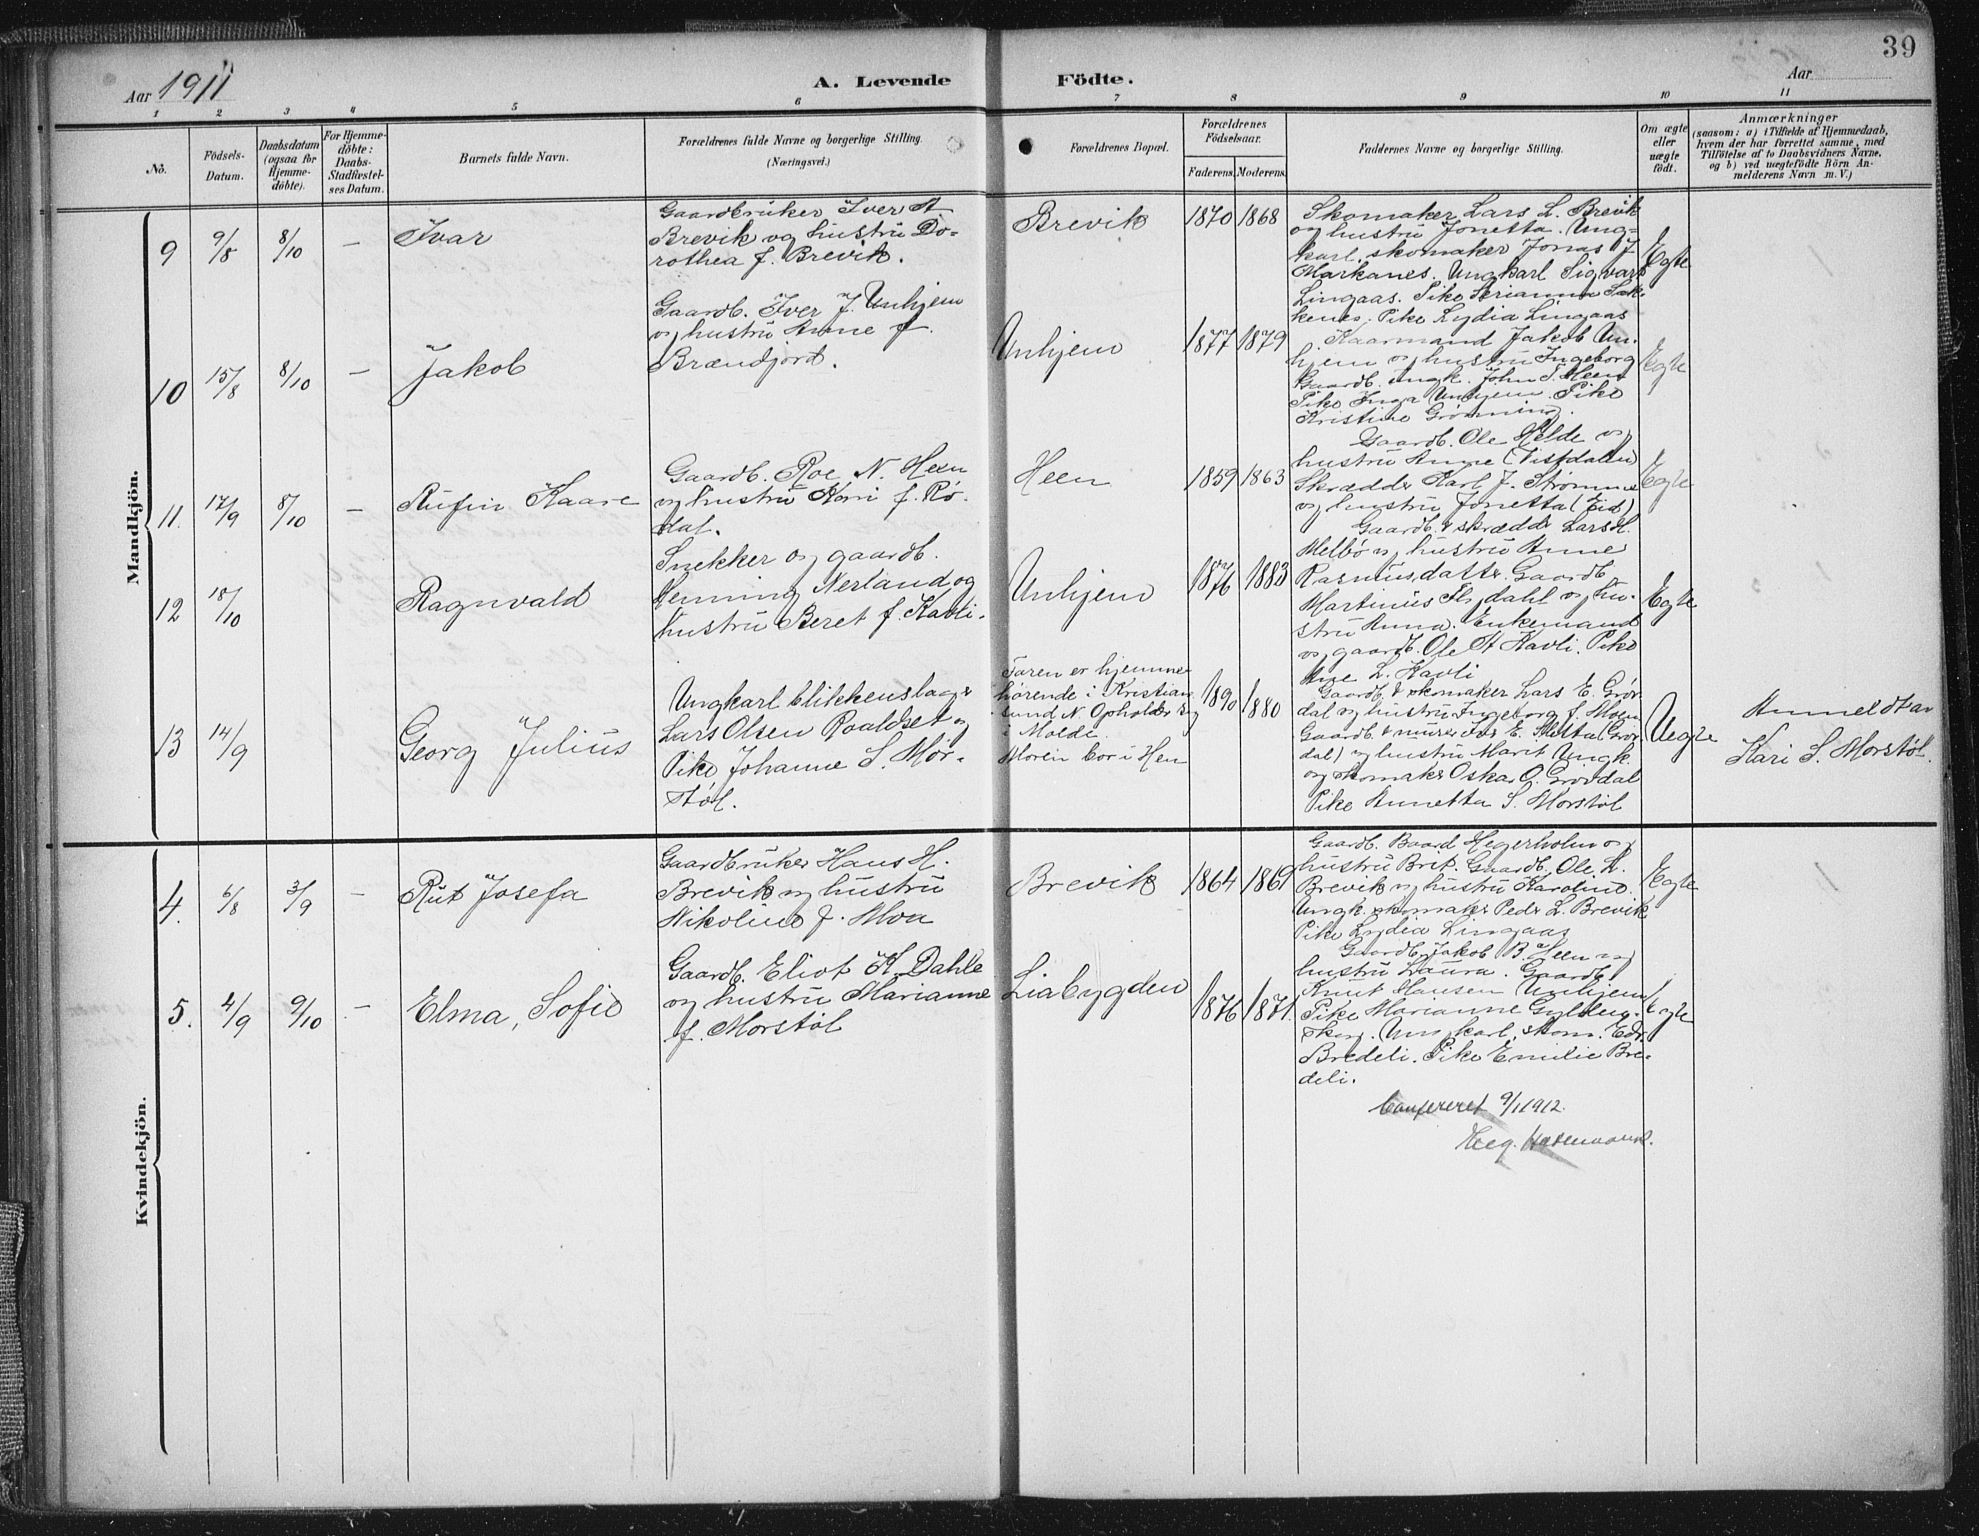 39
Aar 1911
A. Levende
Födte.
Aar
1 2 3 4 5 6 7 8 9 10 11
No.
Födsels-
Datum.
Daabsdatum
(ogsaa för
Hjemme-
döbte).
For Hjemme-
döbte:
Daabs-
Stadfæstel-
ses Datum.
Barnets fulde Navn.
Forældrenes fulde Navne og borgerlige Stilling.
(Næringsvei.)
Forældrenes Bopæl.
Forældrenes
Födselsaar.
Faderens. Moderens.
Faddernes Navne og borgerlige Stilling.
Om ægte
eller
uægte
födt.
Anmærkninger
(saasom: a) i Tilfælde af Hjemmedaab,
hvem der har forrettet samme, med
Tilföielse af to Daabsvidners Navne,
og b) ved uægtefödte Börn An-
melderens Navn m. V.)
Mandkjön.
9
9/8
8/10
–
Ivar
Gaardbruker Iver A
Brevik og hustru Do-
rothea f. Brevik.
Brevik
1870 1868
Skomaker Lars L. Brevik
og hustru Jonetta. Ung-
karl, skomaker Jonas J.
Markanes. Ungkarl Sigvart
Lingaas. Pike Serianna
Pike Lydia Lingaas
Egte
10
15/8
8/10
–
Jakob
Gaardb. Iver J. Unhjem
og hustru Anne f.
Brændjord.
Unhjem
1877 1879
Kaarmand Jakob Un-
hjem og hustru Ingeborg
Gaardb. Ungk. John T. Heen
Pike Inga Unhjem. Pike
Kristine Grønning.
Egte
11.
17/9
8/10
–
Rufin Kaare
Gaardb. Roe N. Heen
og hustru Kari f. Rø-
dal.
Heen
1859 1863
Gaardb. Ole Helde og
hustru Anne (Vistdalen)
Skrædder Karl J. Strømme
og hustru Jonetta (Eid)
Egte
12
18/10
Ragnvald
Snekker og gaardb.
Henning Nerland og
hustru Beret f. Kavli.
Unhjem
1876 1883
Gaardb. & skrædder Lars H.
Melbø og hustru Anne
Rasmusdatter. Gaardb.
Martinus Flydahl og hu-
stru Anna. Enkemand
og gaardb. Ole A Kavli. Pike
Ane L. Kavli
Egte
13
14/9
Georg Julius
Ungkarl blikkenslager
Lars Olsen Roaldset og
Pike Johanne S. Mor-
støl.
Faren er hjemme-
hørende i Kristian-
sund N. Opholder sig
i Molde.
Moren bor i Hen
1890 1880
Gaardb. & skomaker Lars E. Grøv-
dal og hustru Ingeborg f. Moen
Gaardb. & murer Iver E. (Grøv-
dal) og hustru Marit Ungk.
og skomaker Oskar O. Grøvdal
Pike Annetta S. Morstøl
Uegte
Anmeldt av
Kari S. Morstøl.
Kvindekjön.
4.
6/8
3/9
–
Rut Josefa
Gaardbruker Hans H.
Brevik og hustru
Nikoline f. Moa
Brevik
1864 1869
Gaardb. Baard Hegerholm og
hustru Brit. Gaardb. Ole L.
Brevik og hustru Karoline.
Ungk. skomaker Peder L. Brevik
Pike Lydia Lingaas
Egte
5.
4/9
9/10
–
Elma, Sofie
Gaardb. Eliot K. Dahle
og hustru Marianne
f. Morstøl
Liabygden
1876 1871.
Gaardb. Jakob B. Heen og
hustru Laura. Gaardb.
Knut Hansen Unhjem
Pike Marianne Gylden-
skog. Ungkarl, skom. Edv.
Bredeli. Pike Emilie Bre-
deli.
Egte
Confereret 9/1 1912.